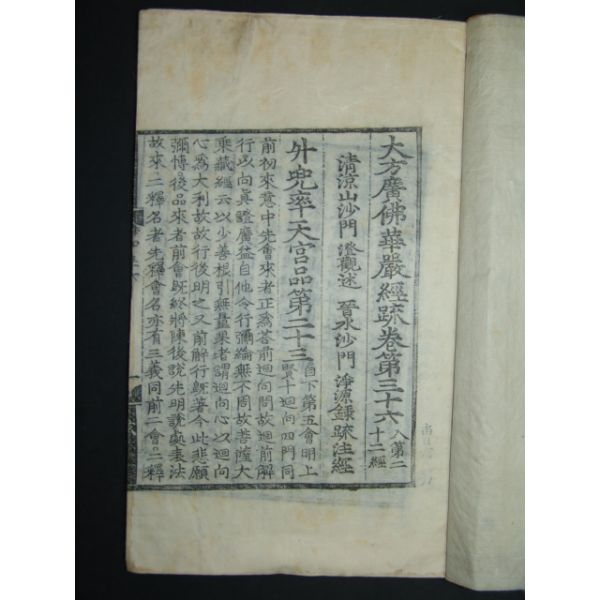 大方廣佛華嚴經䟽卷第三十六 入第二十二經
清凉山沙門 澄觀述 晉水沙門 淨源錄䟽注經
升兜率天宫品第二十三 自下第五會明上賢十迴向四門同
前初來意中先會來者正爲荅前迴向問故迴前解
行以向真證廣益自他令行彌綸無不周故菩薩大
乘藏經云以少善根引無量果者謂迴向心以迴向
心爲大利故故行後明之又前解行旣著今此悲願
彌博後品來者前會旣終將陳後説先明説處表法
故來二釋名者先釋會名亦有三義同前二會二釋